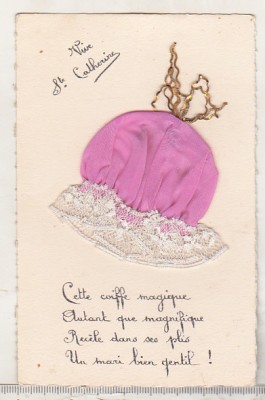 Vive
Ste Catherine
Cette coiffe magique
Autant que magnifique
Recèle dans ses plis
Un mari bien gentil !